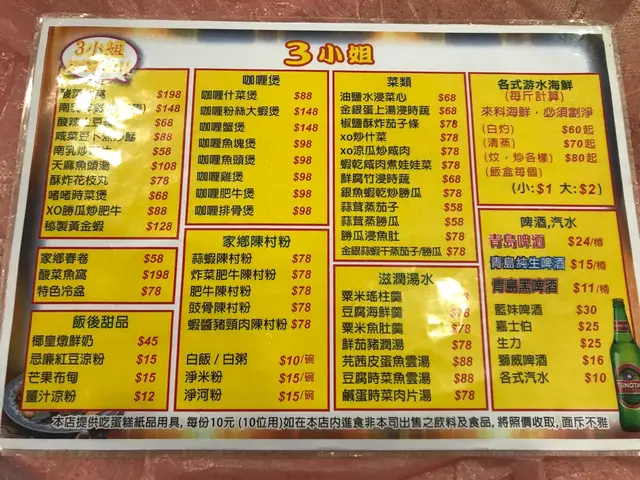 3小姐
3小姐
$198
$148
$68
$88
南乳 $58
天麻魚頭湯 $108
酥炸花枝丸 $78
啫啫時菜煲 $68
XO勝瓜炒肥牛 $88
秘製黃金蝦 $128
家鄉春卷 $58
酸菜魚窩 $198
特色冷盆 $78
飯後甜品
椰皇燉鮮奶 $45
忌廉紅豆涼粉 $15
芒果布甸 $15
薑汁涼粉 $12
咖喱煲
咖喱什菜煲 $88
咖喱粉絲大蝦煲 $148
咖喱蟹煲 $148
咖喱魚塊煲 $98
咖喱魚頭煲 $98
咖喱雞煲 $98
咖喱肥牛煲 $98
咖喱排骨煲 $98
家鄉陳村粉
蒜蝦陳村粉 $78
炸菜肥牛陳村粉 $78
肥牛陳村粉 $78
豉骨陳村粉 $78
蝦醬豬頸肉陳村粉 $78
白飯/白粥 $10/碗
淨米粉 $15/碗
淨河粉 $15/碗
菜類
油鹽水浸菜心 $68
金銀蛋上湯浸時蔬 $68
椒鹽酥炸茄子條 $78
xo炒什菜 $78
xo涼瓜炒咸肉 $78
蝦乾咸肉煮娃娃菜 $78
鮮腐竹浸時蔬 $68
銀魚蝦乾炒勝瓜 $78
蒜茸蒸茄子 $58
蒜茸蒸勝瓜 $58
勝瓜浸魚肚 $78
金銀蒜蝦干蒸茄子/勝瓜 $78
滋潤湯水
粟米瑤柱羹 $78
豆腐海鮮羹 $78
粟米魚肚羹 $78
鮮茄豬潤湯 $78
芫茜皮蛋魚雲湯 $88
豆腐時菜魚雲湯 $88
鹹蛋時菜肉片湯 $78
各式游水海鮮
(每斤計算)
來料海鮮，必須劏淨
(白灼) $60起
(清蒸) $70起
(炆，炒各樣) $80起
(飯盒每個)
(小:$1 大:$2)
啤酒,汽水
青島啤酒 $24/樽
青島纯生啤酒 $15/樽
青島黑啤酒 $11/樽
藍妹啤酒 $30
嘉士伯 $25
生力 $25
獅威啤酒 $16
各式汽水 $10
本店提供吃蛋糕紙品用具, 每份10元 (10位用)如在本店内進食非本司出售之飲料及食品, 將照價收取, 面斥不雅